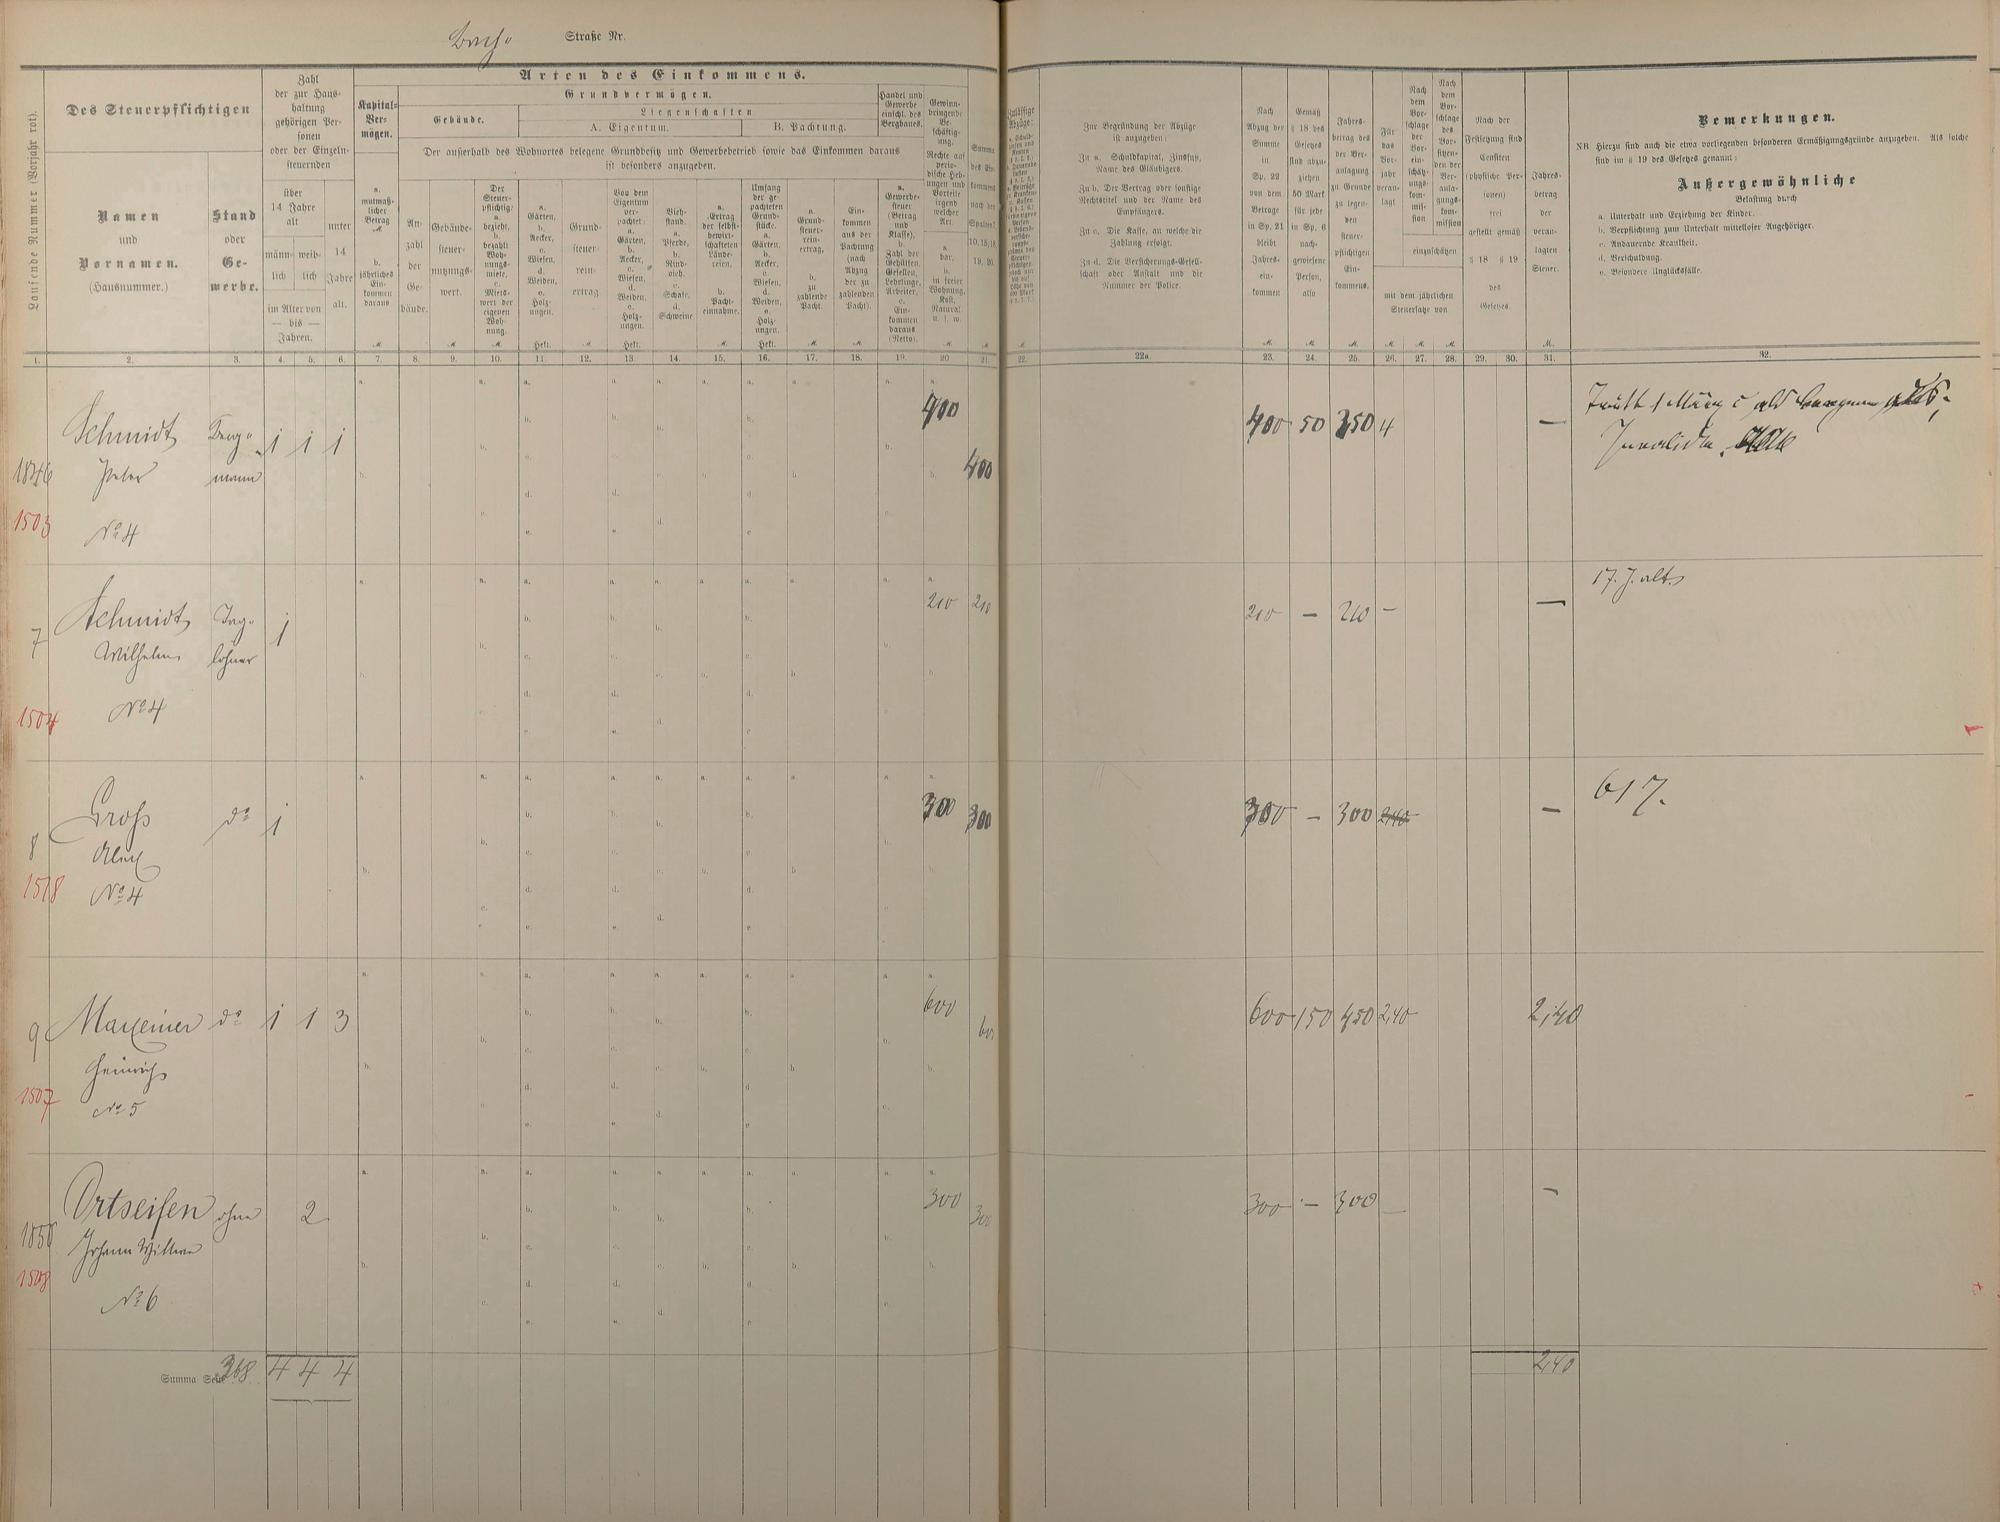 Straße Nr.
Laufende Nummer (Vorjahr rot).
Des Steuerpflichtigen
Namen
und
Vornamen.
(Hausnummer.)
Stand
oder
Ge-
werbe.
Zahl
der zur Haus-
haltung
gehörigen Per-
sonen
oder der Einzeln-
steuernden
über
14 Jahre
alt
männ-
lich
weib-
lich
unter
14
Jahre
alt.
im Alter von
— bis —
Jahren.
Arten des Einkommens.
Kapital-
Ver-
mögen.
a.
mutmaß-
licher
Betrag
M.
b.
jährliches
Ein-
kommen
daraus
Grundvermögen.
Gebäude.
Liegenschaften
A. Eigentum.
B. Pachtung.
Der außerhalb des Wohnortes belegene Grundbesitz und Gewerbebetrieb sowie das Einkommen daraus
ist besonders anzugeben.
An-
zahl
der
Ge-
bäude.
Gebäude-
steuer-
nutzungs-
wert.
Der
Steuer-
pflichtige:
a.
bezieht,
b.
bezahlt
Woh-
nungs-
miete,
c.
Miets-
wert der
eigenen
Woh-
nung.
a.
Gärten,
b.
Aecker,
c.
Wiesen,
d.
Weiden,
e.
Holz-
ungen.
Hekt.
Grund-
steuer-
rein-
ertrag
Von dem
Eigentum
ver-
pachtet:
a.
Gärten,
b.
Aecker,
c.
Wiesen,
d.
Weiden,
e.
Holz-
ungen.
Hekt.
Vieh-
stand.
a.
Pferde,
b.
Rind-
vieh.
c.
Schafe,
d.
Schweine.
a.
Ertrag
der selbst-
bewirt-
schafteten
Lände-
reien,
b.
Pacht-
einnahme.
Umfang
der ge-
pachteten
Grund-
stücke.
a.
Gärten,
b.
Aecker,
c.
Wiesen,
d.
Weiden,
e.
Holz-
ungen.
Hekt.
a.
Grund-
steuer-
rein-
ertrag,
b.
zu
zahlende
Pacht.
Ein-
kommen
aus der
Pachtung
(nach
Abzug
der zu
zahlenden
Pacht).
Handel und
Gewerbe
einschl. des
Bergbaues.
a.
Gewerbe-
steuer
(Betrag
und
Klasse),
b.
Zahl der
Gehülfen,
Gesellen,
Lehrlinge,
Arbeiter,
c.
Ein-
kommen
daraus
(Netto).
Gewinn-
bringende
Be-
schäftig-
ung.
Rechte auf
perio-
dische Heb-
ungen und
Vorteile
irgend
welcher
Art.
a.
bar,
b.
in freier
Wohnung,
Kost,
Natural.
u. s. w.
Summa
des Ein-
kommens
nach den
Spalten 7,
10, 15, 18,
19, 20.
Zulässige
Abzüge:
Zur Begründung der Abzüge
ist anzugeben:
Zu a. Schuldkapital, Zinsfuß,
Name des Gläubigers.
Zu b. Der Vertrag oder sonstige
Rechtstitel und der Name des
Empfängers.
Zu c. Die Kasse, an welche die
Zahlung erfolgt.
Zu d. Die Versicherungs-Gesell-
schaft oder Anstalt und die
Nummer der Police.
Nach
Abzug der
Summe
in
Sp. 22
von dem
Betrage
in Sp. 21
bleibt
Jahres-
ein-
kommen
Gemäß
§ 18 des
Gesetzes
sind abzu-
ziehen
50 Mark
für jede
in Sp. 6
nach-
gewiesene
Person,
also
Jahres-
betrag des
der Ver-
anlagung
zu Grunde
zu legen-
den
steuer-
pflichtigen
Ein-
kommens.
Für
das
Vor-
jahr
veran-
lagt
Nach
dem
Vor-
schlage
der
Vor-
ein-
schätz-
ungs-
kom-
mis-
sion
Nach
dem
Vor-
schlage
des
Vor-
sitzen-
den der
Ver-
anla-
gungs-
kom-
mission
einzuschätzen
mit dem jährlichen
Steuersatze von
Nach der
Festsetzung sind
Censiten
(physische Per-
sonen)
frei
gestellt gemäß
§ 18 § 19
des
Gesetzes.
Jahres-
betrag
der
veran-
lagten
Steuer.
Bemerkungen.
NB Hierzu sind auch die etwa vorliegenden besonderen Ermäßigungsgründe anzugeben. Als solche
sind im § 19 des Gesetzes genannt:
Außergewöhnliche
Belastung durch
a. Unterhalt und Erziehung der Kinder.
b. Verpflichtung zum Unterhalt mittelloser Angehöriger.
c. Andauernde Krankheit.
d. Verschuldung.
e. Besondere Unglücksfälle.
1. 2. 3. 4. 5. 6. 7. 8. 9. 10. 11. 12. 13. 14. 15. 16. 17. 18. 19. 20 21. 22. 22a. 23. 24. 25. 26. 27. 28. 29. 30. 31. 32.
Schmidt Berg- 1 1 1 400 400 400 50 350 4 —
Peter mann
1503
No 4
Invaliden
7 Schmidt Tag- 1 210 210 210 — 210 — — 17. J. alt.
Wilhelm löhner
1504 No 4
8 Groß do 1 300 300 300 — 300 2,40 — 617.
1518 No 4
9 Maxeiner do 1 1 3 600 600 600 150 450 2,40 2,40
Heinrich
1507 No 5
1850 Ortseifen ohne 2 300 300 300 — 300 — —
Johann Wittwe
1508
No 6
Summa Seite 368 4 4 4 2,40